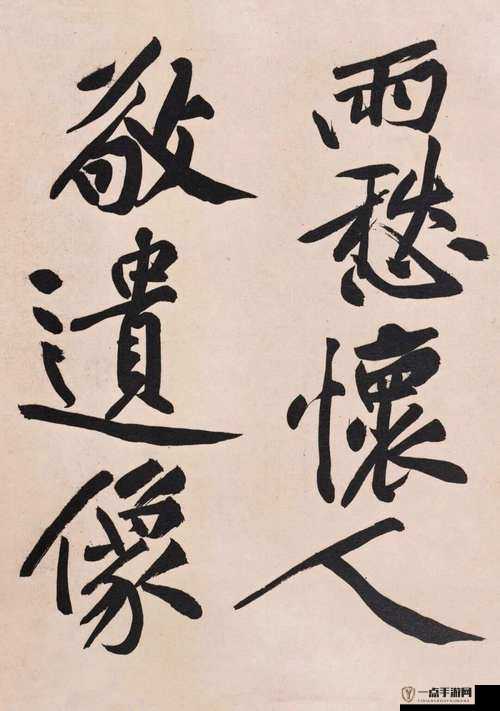 雨愁懷人
敬遺像
一点手游网